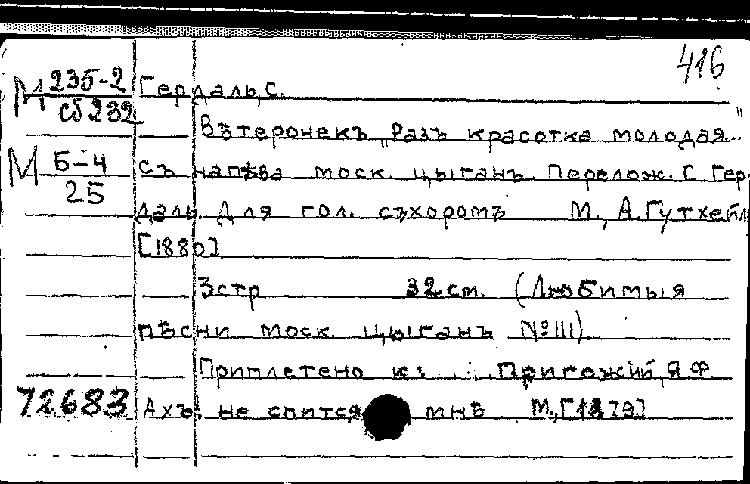 416
М 235-2 Гердаль, С.
сб 232
Вѣтеронекъ „Разъ красотка молодая..."
М Б-4 съ напѣва моск. цыганъ. Перелож. С Гер-
25
даль. Для гол. съхоромъ М., А. Гутхейль
[1880]
3стр 32 см. (Любимыя
пѣсни моск. цыганъ № 111)
Приплетено к: Пригожий, Я Ф
72683 Ахъ, не спится мнѣ М., [1879]